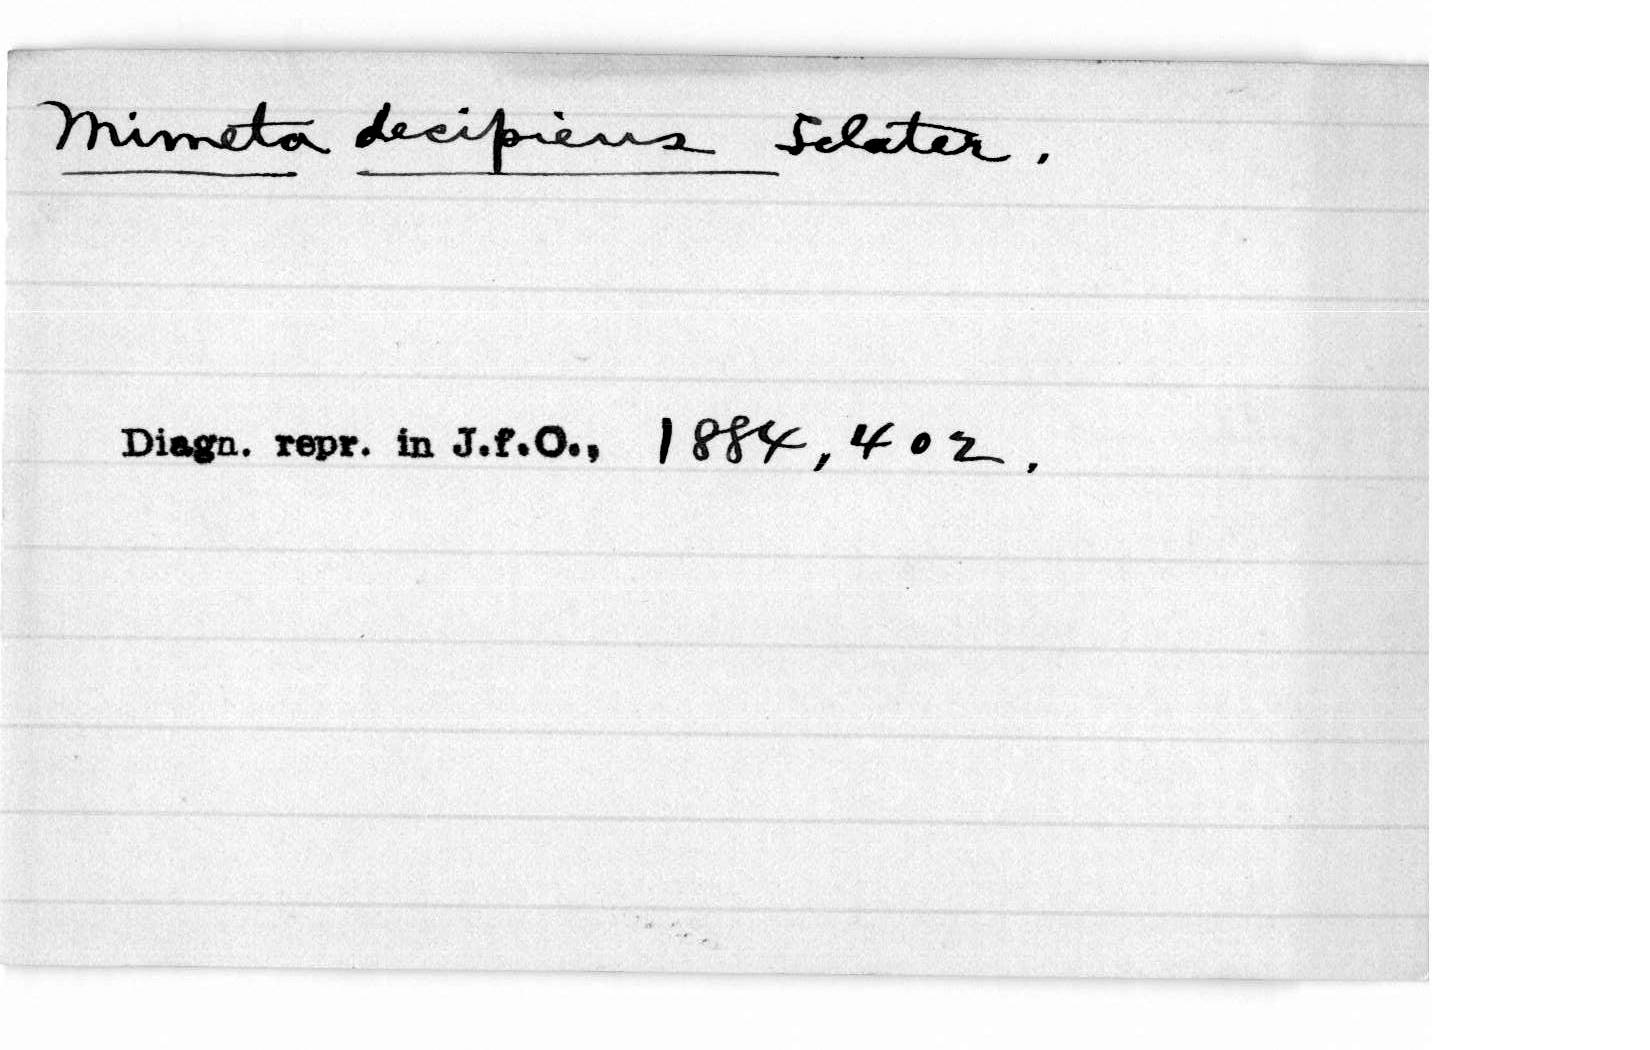 Mimeta decipiens Sclater.
Diagn. repr. in J.f.O., 1884, 402.